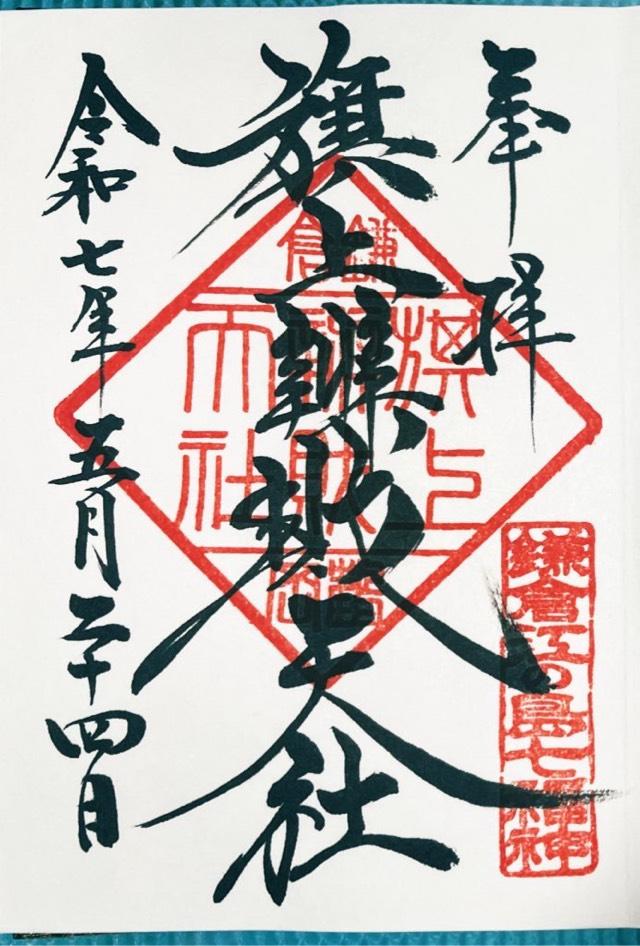 奉拝
旗上辨財天社
令和七年五月二十四日
鎌倉
旗上
辨財
天社
鎌倉江の島七福神